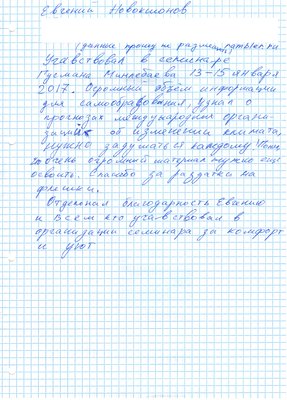 Евгений Новокшонов
(данные прошу не размещать
Учавствовал в семинаре
Гусмана Минлебаева 13-15 января
2017. Огромный объём информации
для самообразования, узнал о
прогнозах международных органи-
заций об изменении климата,
нужно задуматься каждому.
очень огромный материал нужно ещё
освоить. Спасибо за раздатки на
флешки.
Отдельная благодарность Евгению
и Всем кто учавствовал в
организации семинара за комфорт
и уют